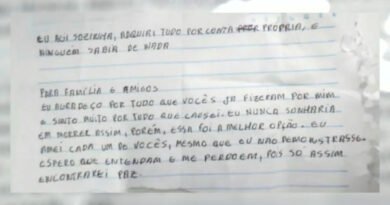 EU AGI SOZINHA, ADQUIRI TUDO POR CONTA PROPRIA, E
NINGUÉM SABIA DE NADA
PARA FAMÍLIA E AMIGOS
EU AGRADEÇO POR TUDO QUE VOCÊS JÁ FIZERAM POR MIM
E SINTO MUITO POR TUDO QUE CAUSEI. EU NUNCA SONHARIA
EM MORRER ASSIM, PORÉM, ESSA FOI A MELHOR OPÇÃO. EU
AMEI CADA UM DE VOCÊS, MESMO QUE EU NÃO DEMONSTRASSE.
ESPERO QUE ENTENDAM E ME PERDOEM, POIS SÓ ASSIM
ENCONTRAREI PAZ.